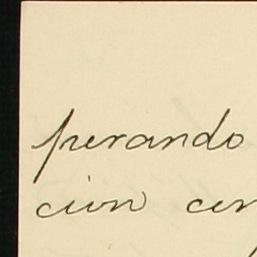 perando
cion cer